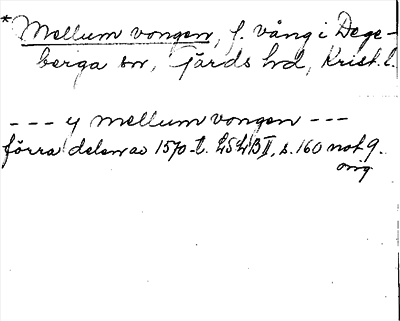 *Mellum vongen, f. vång i Dege-
berga sn, Gärds hd, Krist. l.
--- y mellum vongen ---
förra delen av 1570-t. LSLB II, s. 160 not 9.
orig.